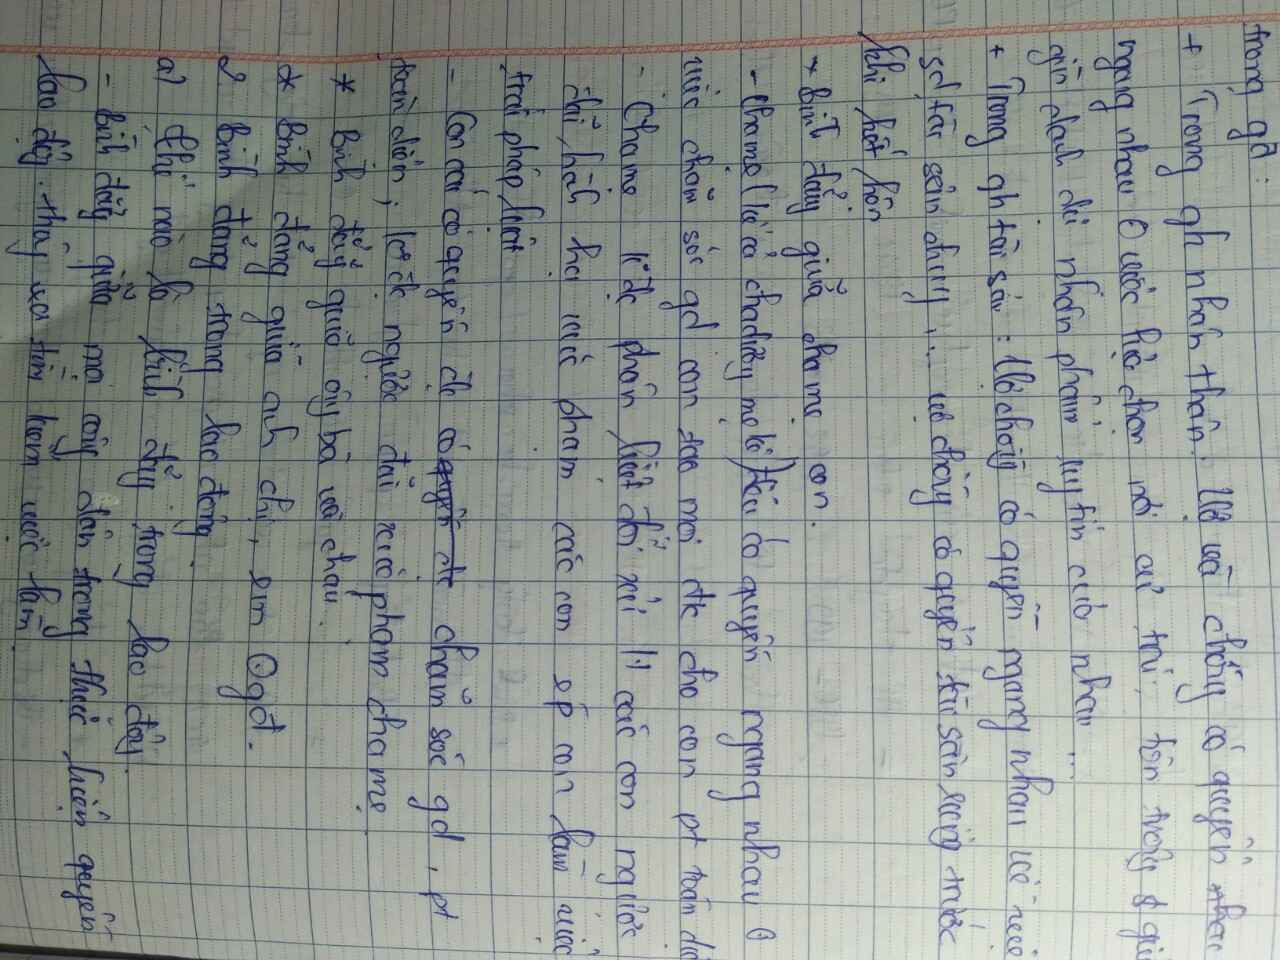 trong gđ:
+ Trong qh nhân thân. Vợ và chồng có quyền
ngang nhau việc lựa chọn nơi cư trú, tôn trọng & giữ
gìn danh dự nhân phẩm uy tín của nhau...
+ Trong qh tài sản: Vợ chồng có quyền ngang nhau về
sd tài sản chung... vợ chồng có quyền tài sản riêng trước
khi kết hôn
* Bình đẳng giữa cha mẹ con.
- Cha mẹ (kể cả cha dượng mẹ kế) đều có quyền ngang nhau
việc chăm sóc gd con tạo mọi đk cho con pt toàn diện
- Cha mẹ k đc phân biệt đối xử các con ngược
đãi, hành hạ xúc phạm các con ép con làm việc
trái pháp luật
- Con cái có quyền đc chăm sóc gd, pt
toàn diện; k đc ngược đãi xúc phạm cha mẹ
* Bình đẳng giữa ông bà và cháu.
* Bình đẳng giữa anh, chị, em gđ.
2 Bình đẳng trong lao động
a) Thế nào là bình đẳng trong lao động.
- Bình đẳng giữa mọi công dân trong thực hiện quyền
lao động. thông qua tìm kiếm việc làm